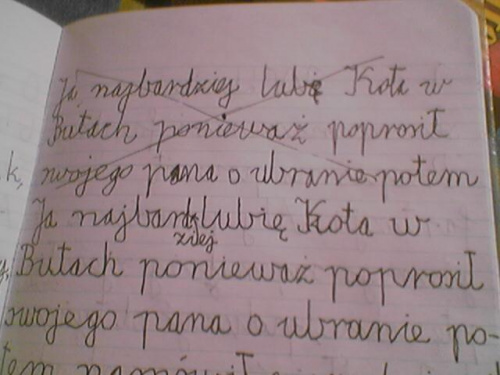 Ja najbardziej lubię Kota w
Butach ponieważ poprosił
swojego pana o ubranie potem
Ja najbardlubię Kota w
ziej
Butach ponieważ poprosił
swojego pana o ubranie po-
tem namówił
k,